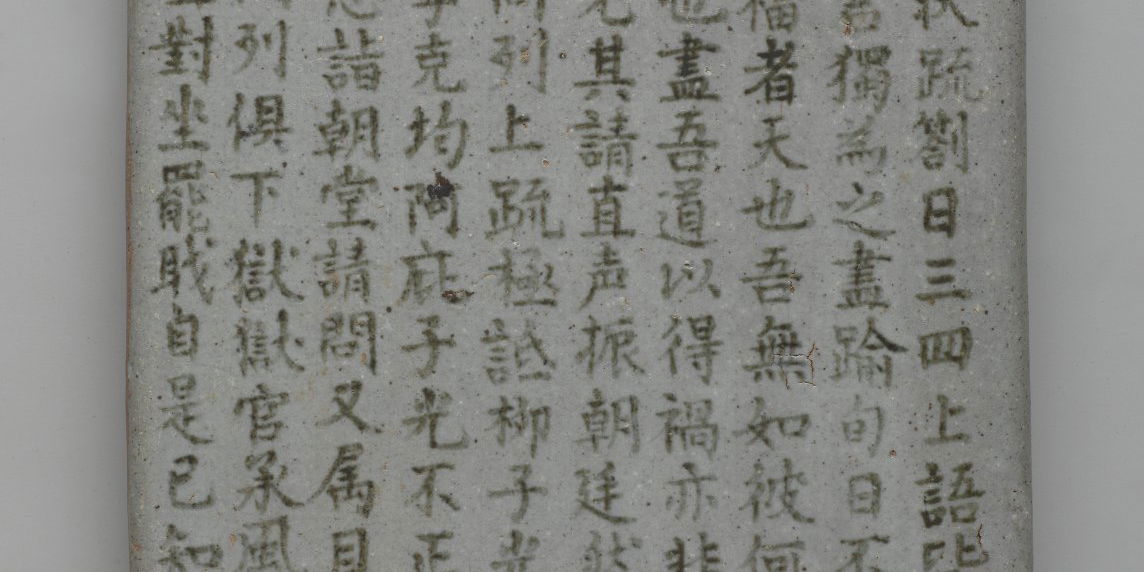 疏劄日三四上語
獨為之盡踰旬日不
福者天也吾無如彼何
也盡吾道以得禍亦非
其請直声振朝廷然
列上疏極詆柳子光
克均阿庇子光不正
詣朝堂請問又属目
列俱下獄獄官承風
對坐罷戝自是已知